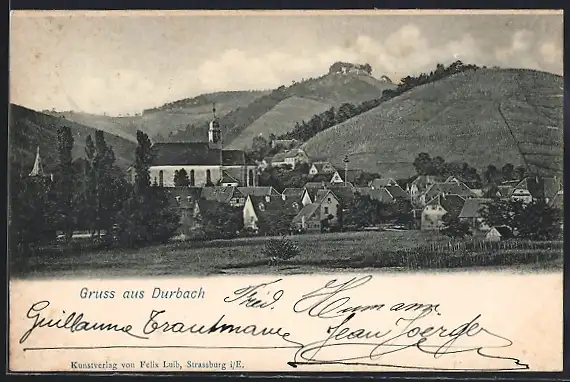 Gruss aus Durbach
Frid. Humann
Guillaume Trautmann Jean Joerger
Kunstverlag von Felix Luib, Strassburg i/E.